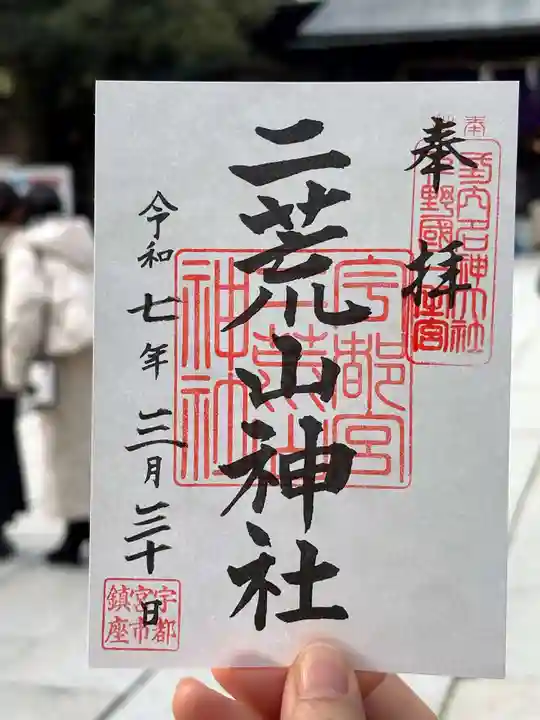 奉拝
延喜式内名神大社
下野國一之宮
二荒山神社
宇都宮
二荒山
神社
令和七年三月三十日
宇都
宮市
鎮座